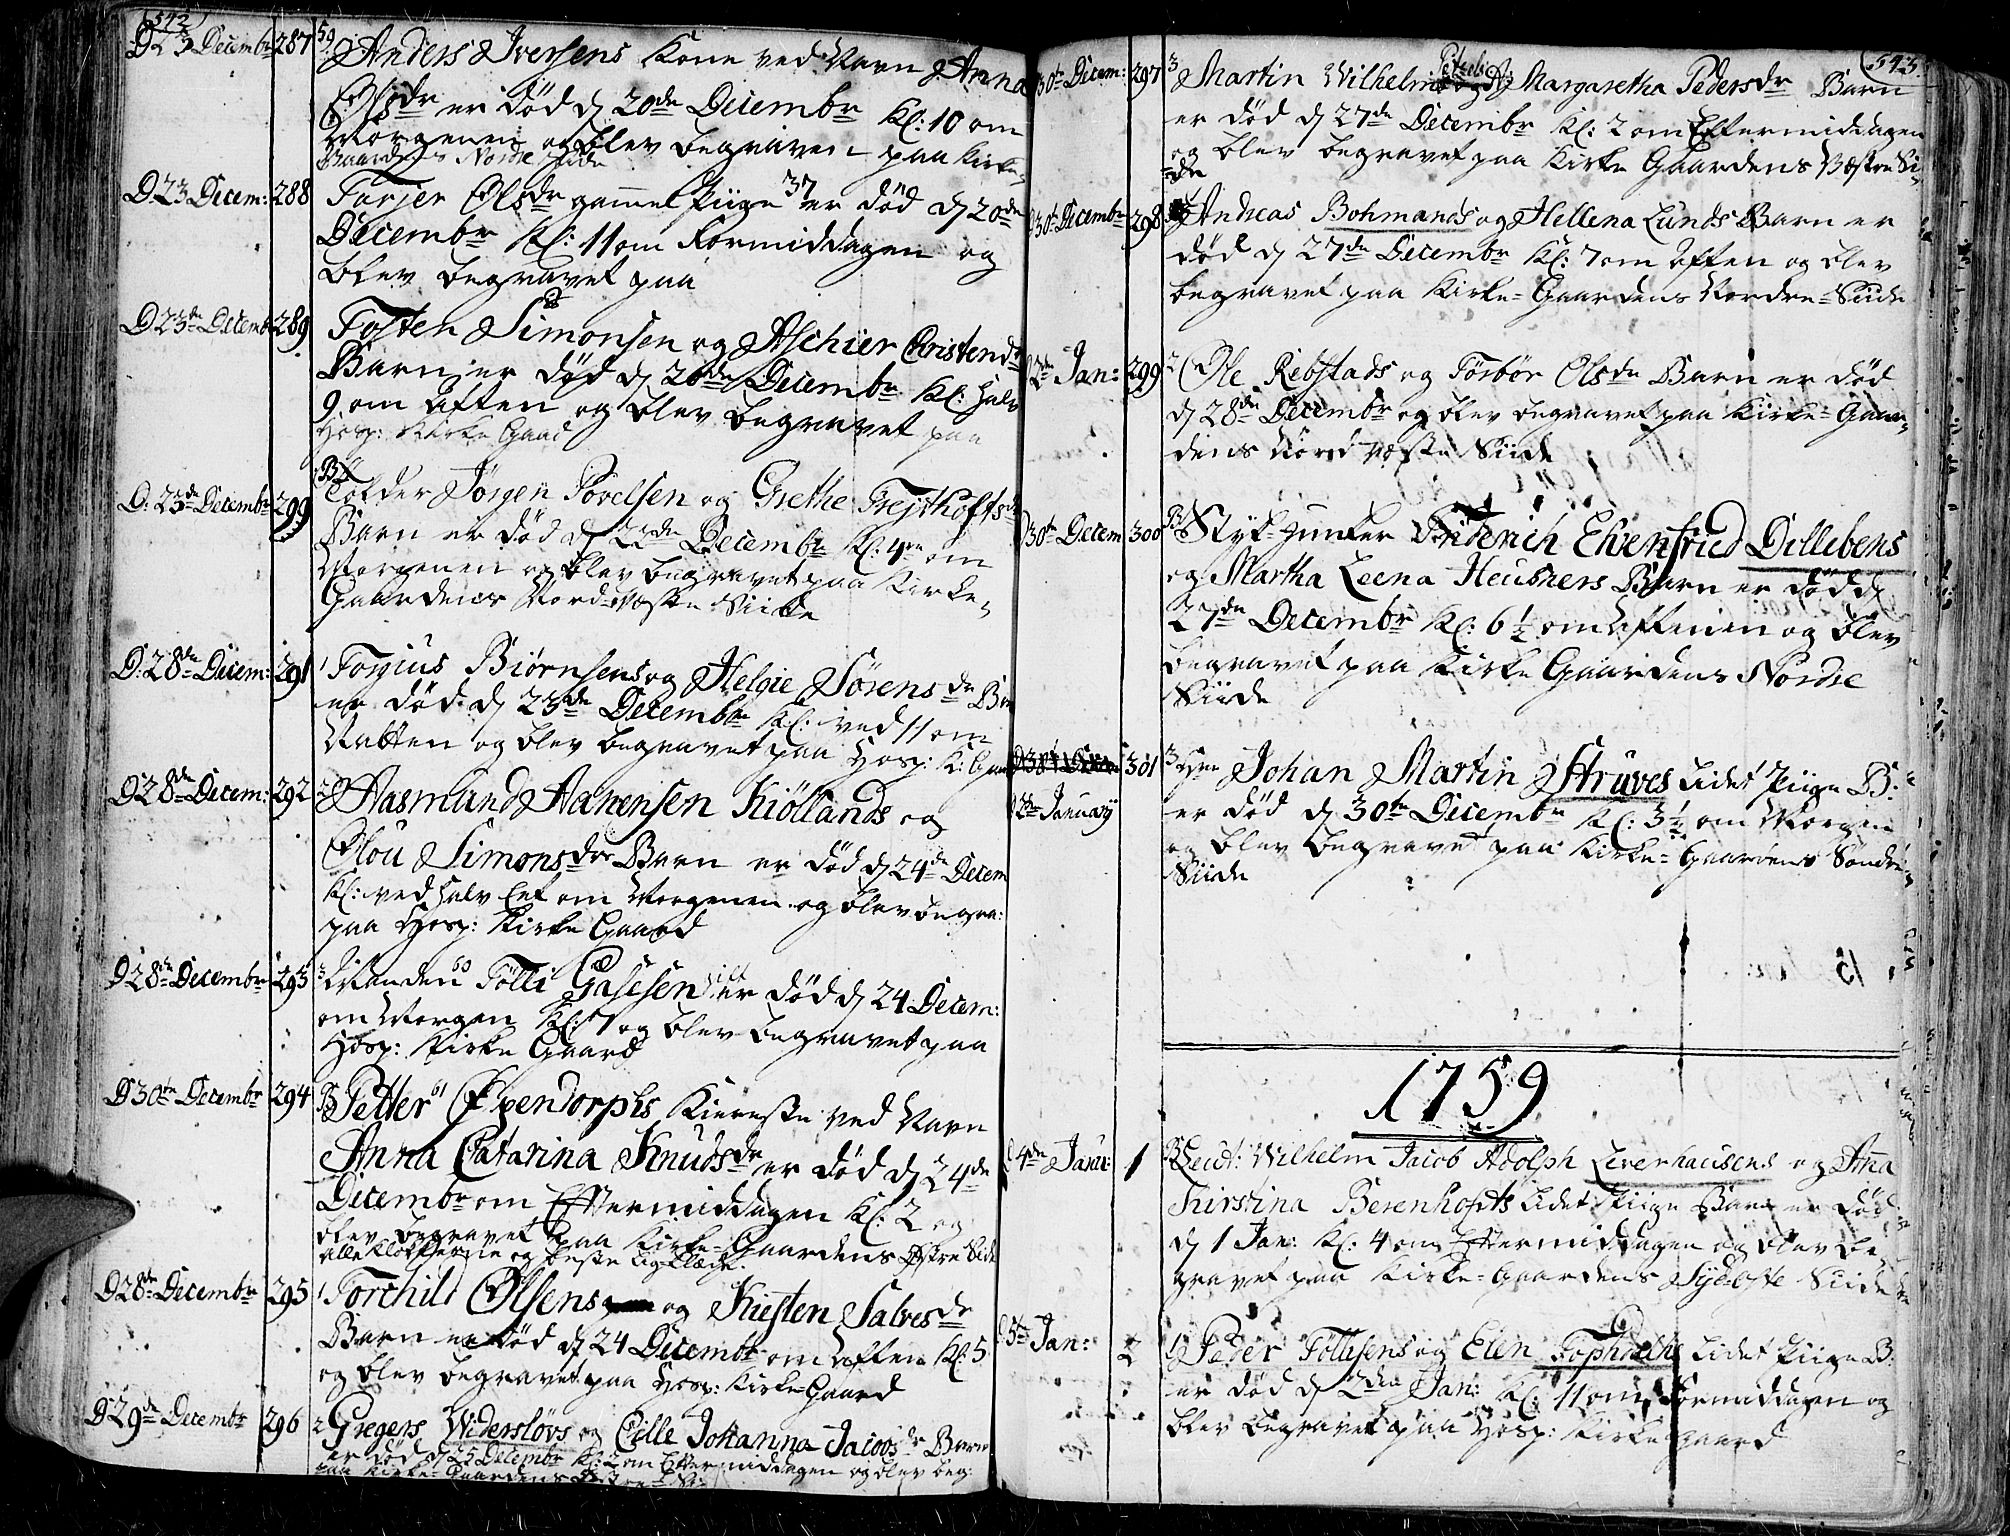 542
D 23 Decembr 287 59 Anders Iversens Kone ved Navn Anna
Olsdr er død d 20de Decembr Kl: 10 om
Morgenen og blev begraven paa Kirke-
Gaardens Nordre Siide
D 23 Decem: 288 Torjer Olsdr gammel Piige 37 er død d 20de
Decembr Kl: 11 om Formiddagen og
blev begravet paa
D 23de Decemb 289 Tosten Simonsen og Aschier Christendr
Barn er død d 20de Decembr Kl: halv
9 om Aften og blev begravet paa
Hosp: Kirke Gaad
D: 23de Decembr 299 Tolder Jørgen Povelsen og Grethe Trejthofts
Barn er død d 22de Decembr Kl: 4re om
Morgenen og blev begravet paa Kirke-
Gaardens Nord Væste Siide
D: 28de Decem: 291 1 Torjius Biørnsens og Helgie Sørensdr Bn
er død d 23de Decembr Kl: ved 11 om
Natten og blev begravet paa Hosp: K: Gaa
D 28de Decem: 292 2 Aasmund Aanensen Kiøllands og
Olou Simonsdrs Barn er død d 24de Decem
Kl: ved halv Eet om Morgenen og blev begra:
paa Hosp: Kirke Gaard
D 28de Decembr 293 3 Manden 60 Tolli Gasesen er død d 24 Decem:
om Morgen Kl: 7 og blev begravet paa
Hosp: Kirke Gaard
D 30te Decembr 294 Petter 61 Eppendorphs Kiereste ved Navn
Anna Catarina Knudsdr er død d 24de
Decembr om Eftermiddagen Kl: 2 og
blev begravet paa Kirke-Gaardens Østre Side
alle Klokkerne og beste Ligklæde.
D 28de Decembr 295 1 Torchild Olsens og Kiesten Salvesdr
Barn er død d 24 Decembr om Aften Kl: 5
og blev begravet paa Hosp: Kirke-Gaard
D 29de Decembr 296 2 Gregers Widersløvs og Cille Johanna Jacobsdr Barn
er død d 25 Decembr Kl: 2 om Eftermiddagen og blev beg:
paa Kirke-Gaardens
543
30te Decem: 297 3 Martin Wilhelm Petersens og A: Margaretha Pedersdr Barn
er død d 27de Decembr Kl: 2 om Eftermiddagen
og blev begravet paa Kirke Gaardens Væstre Si-
de
30te Decembr 298 Andreas Bohmands og Hellena Lunds Barn er
død d 27de Decembr Kl: 7 om Aften og blev
begravet paa Kirke-Gaardens Nordre-Siide
2de Jan: 299 2 Ole Rebstads og Torbør Olsdr Barn er død
d 28de Decembr og blev begravet paa Kirke-Gaar-
dens Nord Væste Siide
30te Decem 300 Styk-Junker Diderich Ehrenfried Dillebens
og Martha Leena Heusners Barn er død d
27de Decembr Kl: 6 1/2 om Aftenen og blev
begravet paa Kirke Gaardens Nordre
Siide
2de Januarij 301 3 Hr: Johan Martin Struves Lidet Piige B:
er død d 30te Decembr Kl: 3 1/2 om Morgen
og blev begravet paa Kirke-Gaardens Søndre
Siide
1759
4de Janu: 1 Leut: Wilhelm Jacob Adolph Leverhausens og Anna
Kirstina Berenhofts Lidet Piige Barn er død
d 1 Jan: Kl: 4 om Eftermiddagen og blev be
gravet paa Kirke-Gaardens Syd-Oste Siide
5te Jan: 2 Peder Tollisens og Elen Topholts Lidet Piige B:
er død d 2den Jan: Kl: 11 om Formiddagen og
blev begravet paa Hosp: Kirke Gaard